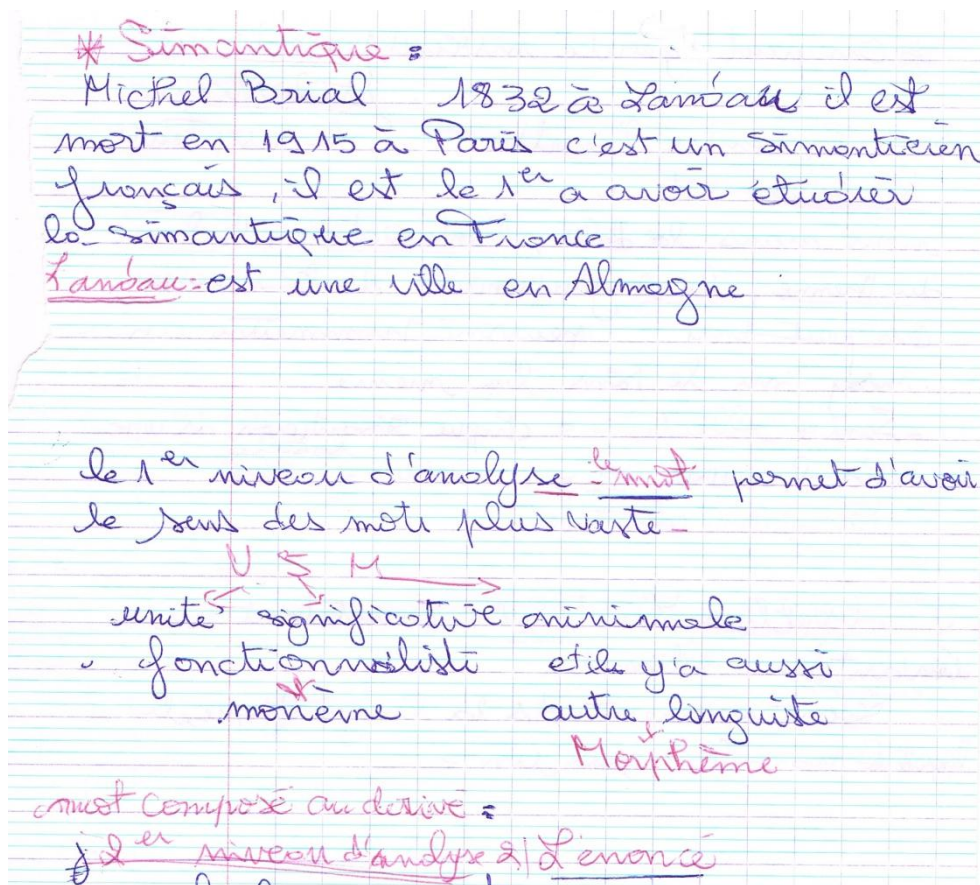 * Simantique :
Michel Brial 1832 à Landau il est
mort en 1915 à Paris c'est un Simanticien
français, il est le 1er a avoir étudier
la simantique en France
Landau : est une ville en Almagne
le 1er niveau d'analyse : le mot permet d'avoir
le sens des mots plus vaste -
U S M
unité significative minimale
fonctionnaliste et il y'a aussi
monème autre linguiste
Morphème
mot composé ou derivé :
2er niveau d'analyse 2/ L'énoncé